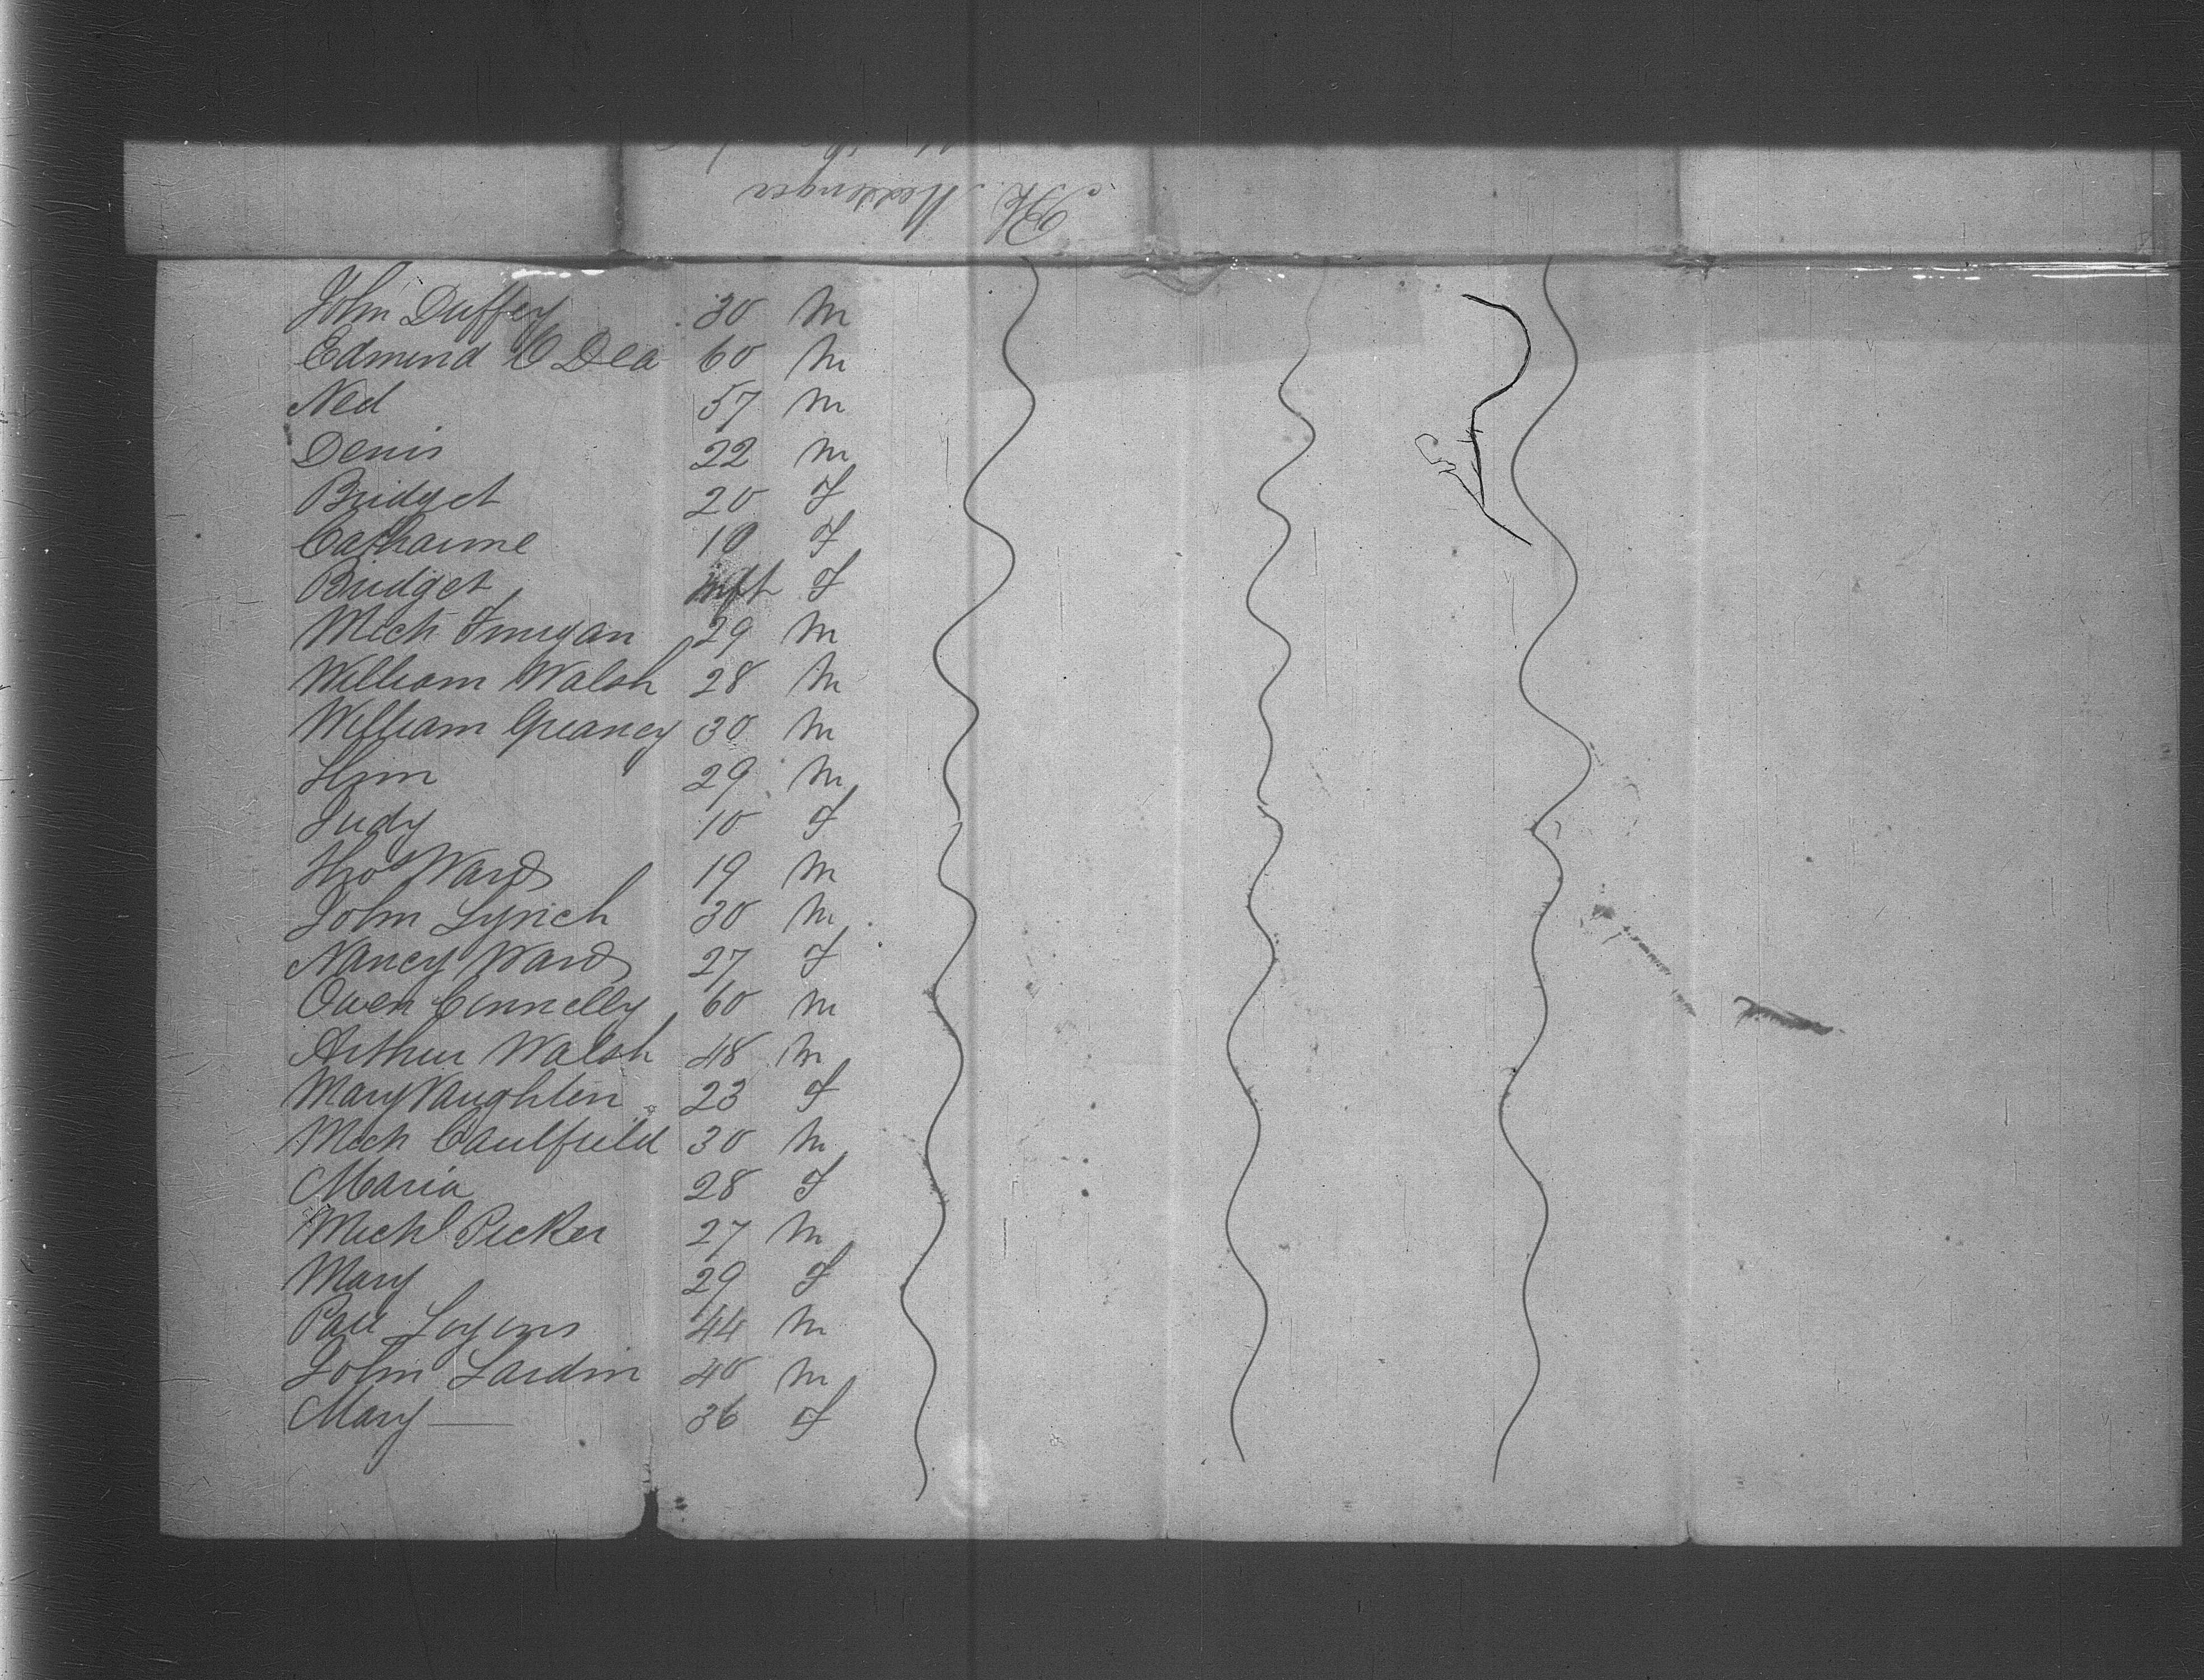 Bk. Messenger
John Duffey 30 M
Edmund O Dea 60 M
Ned 57 M
Denis 22 M
Bridget 20 F
Catharine 10 F
Bridget inft F
Mich Finigan 29 M
William Walsh 28 M
William Greaney 30 M
29 M
Judy 10 F
Thos Ward 19 M
John Lynch 30 M
Nancy Ward 27 F
Owen Connelly 60 M
Arthur Walsh 48 M
Mary Naughten 23 F
Mich Caulfield 30 M
Maria 28 F
Michl Picker 27 M
Mary 29 F
Patt Lyons 44 M
John Lardin 40 M
Mary — 36 F